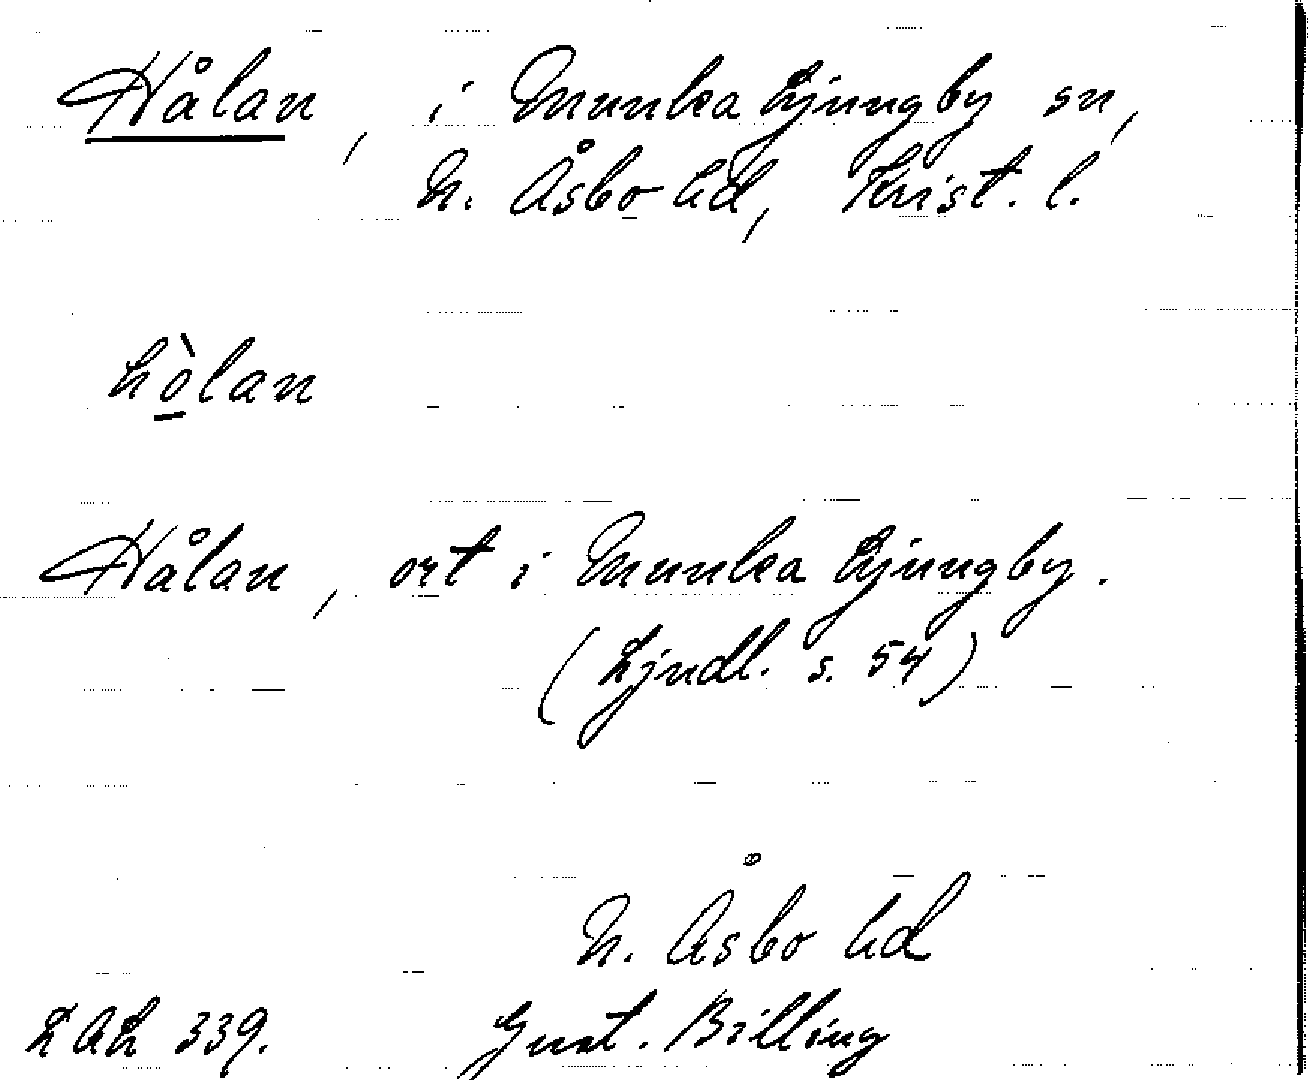 Hålan, i Munka Ljungby sn,
N. Åsbo hd, Krist. l.
hò̱lan
Hålan, ort i Munka Ljungby.
(Ljudl. s. 54)
N. Åsbo hd
LAL 339. Gust. Billing